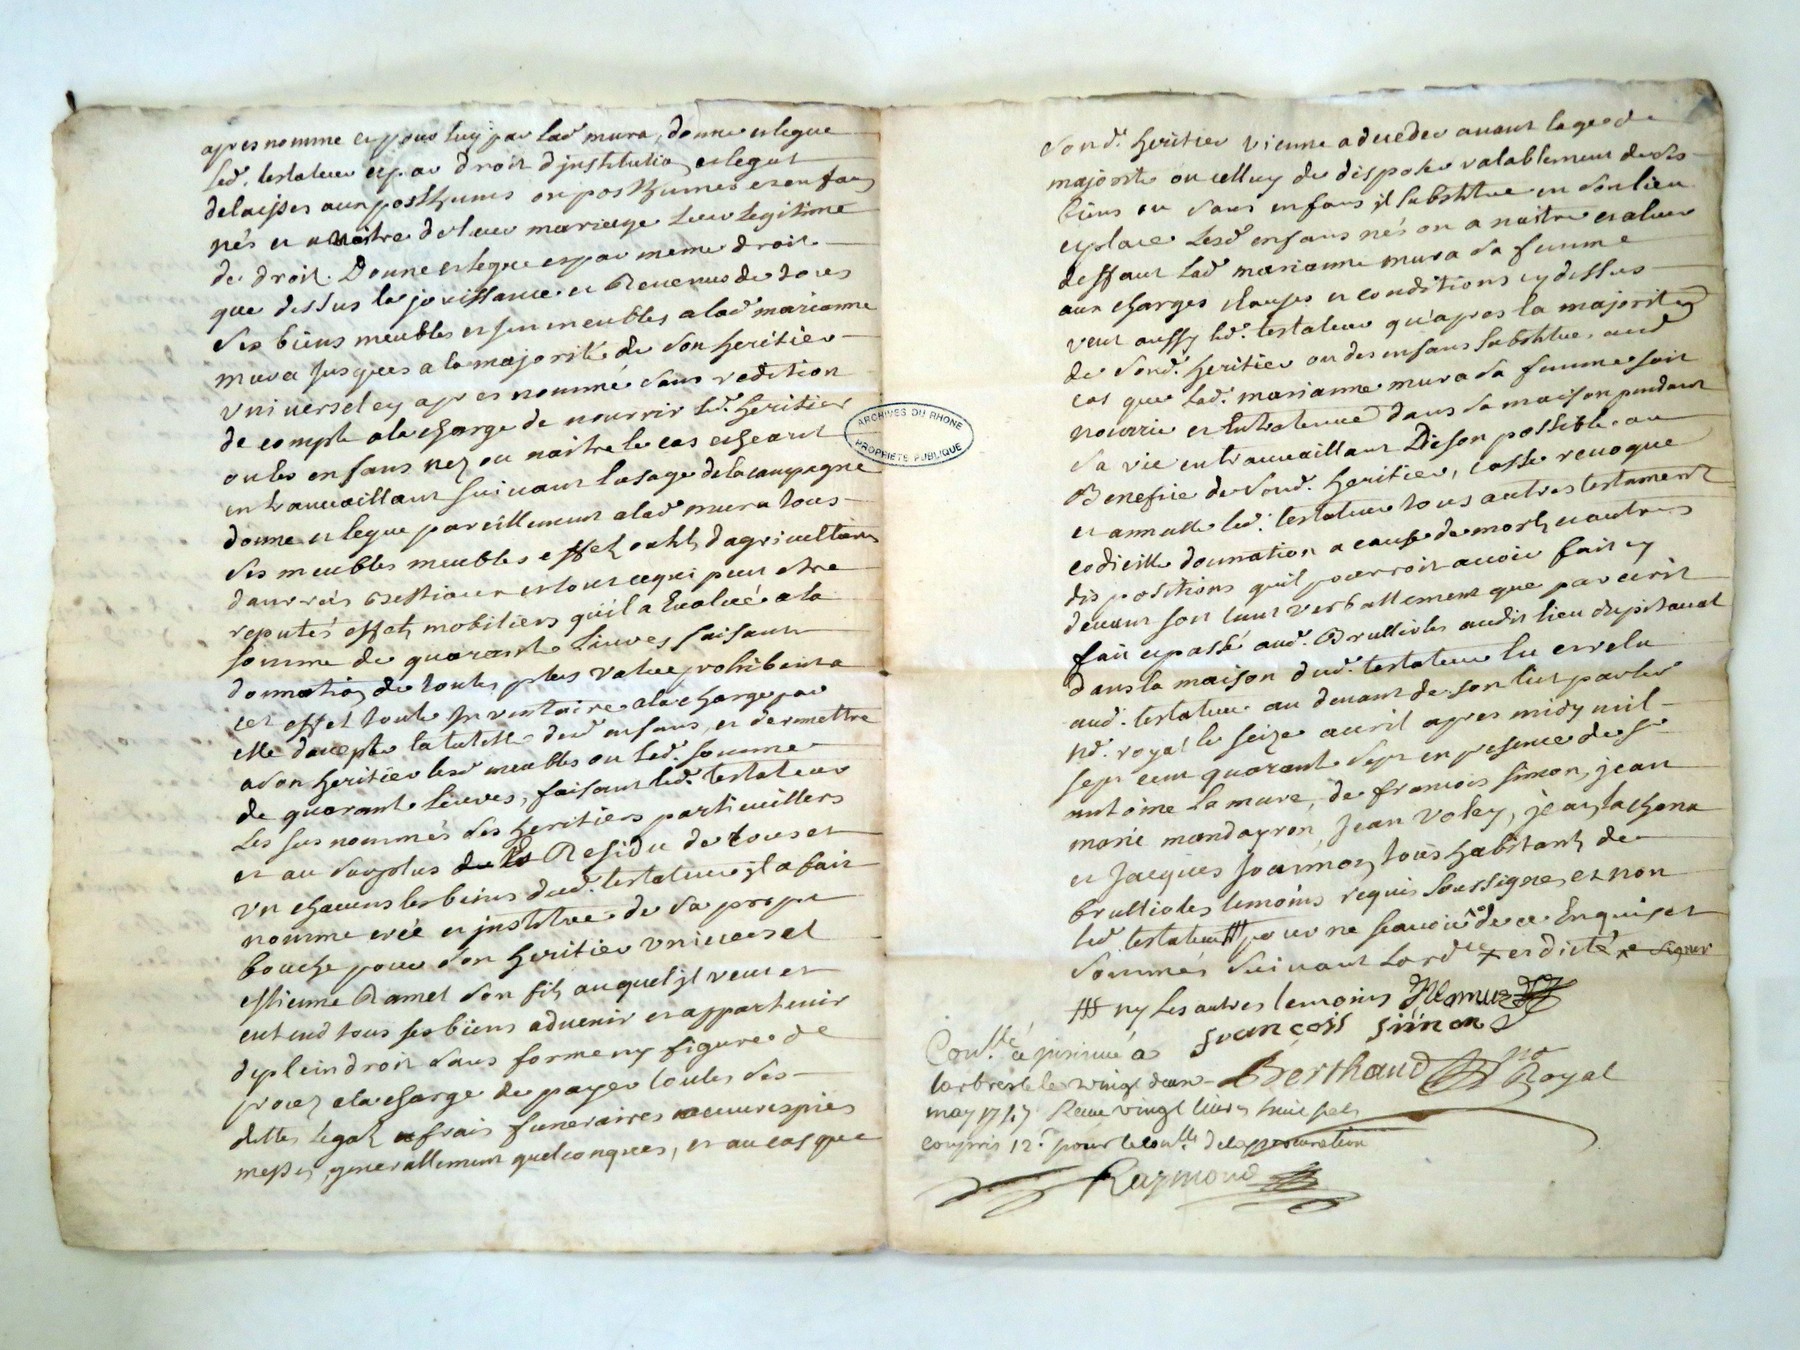 apres nomme et pour luy par lad. mura, donne et legue
led. testateur et par droit d'institution et legat
delaisses aux posthumes ou posthumes et enfans
nés et a naitre de leur mariage leur legitime
de droit. Donne et legue et par meme droit
que dessus la jouissance et Revenus de tous
ses biens meubles et immeubles a lad. marianne
mura jusques a la majorité de son heritier
universel cy apres nommé sans redition
de compte a la charge de nourrir led. heritier
ou les enfans nez ou naitre le cas echeant
en travaillant suivant l'usage de la campagne
donne et legue pareillement a lad. mura tous
ses meubles meubles effets outils d'agriculture
danrrés bestiaux et tout ce qui peut etre
reputés effets mobiliers qu'il a Evalué a la
somme de quarante livres faisant
donnation de toutes plus value prohibant a
cet effet toute Inventaire a la charge par
elle d'accepter la tutelle desd. enfans, et de remettre
a son heritier lesd. meubles ou lad. somme
de quarante livres, faisant led. testateur
les sus nommés ses heritiers particulliers
et au surplus et Residu de tous et
un chacuns les biens dud. testateur il a fait
nomme créé et institue de sa propre
bouche pour son heritier universel
estienne Ramel son fils auquel il veut et
entend tous ses biens advenir et appartenir
de plein droit sans forme ny figure de
procez a la charge de payer toutes ses
dettes legats frais funeraires œuvres pies
messes, generallement quelconques, et au cas que
sond. heritier vienne a deceder avant l'age de
majorité ou celluy de disposer valablement de ses
biens ou sans enfans il substitue en son lieu
et place lesd. enfans nés ou a naitre et a leur
deffaut lad. marianne mura sa femme
aux charges clauses et conditions cy dessus
veut aussy led. testateur qu'apres la majorité
de sond. heritier ou des enfans substitue, aud.
cas que lad. marianne mura sa femme soit
nourrie et Entretenue dans sa maison pendant
sa vie en travaillant De son possible au
Benefice de sond. heritier, casse revoque
et annulle led. testateur tous autres testament
codicille donnation a cause de mort et autres
dispositions qu'il pourroit avoir fait cy
devant soit tant verballement que par ecrit
fait et passé aud. Brullioles audit lieu du pitaval
dans la maison dud. testateur lu et relu
aud. testateur au devant de son lit par le
nd. royal le seize avril apres midy mil
sept cent quarante sept en presence de sr
antoine la mure, de francois simon, jean
marie mondayron, Jean Voley, jean lachana
et Jacques Joannon tous habitants de
brullioles temoins requis soussignes et non
led. testateur pour ne scavoir de ce Enquis et
sommés suivant lord.ce et dicté signer
ny les autres temoins DeLamure
francois simon
Con.lle & insinué a
larbresle le vingt deux Berthaud no. Royal
may 1747 Receu vingt livres huit sols
compris 12 s. pour le con.lle de la procuration
Raymond
ARCHIVES DU RHONE
PROPRIÉTÉ PUBLIQUE